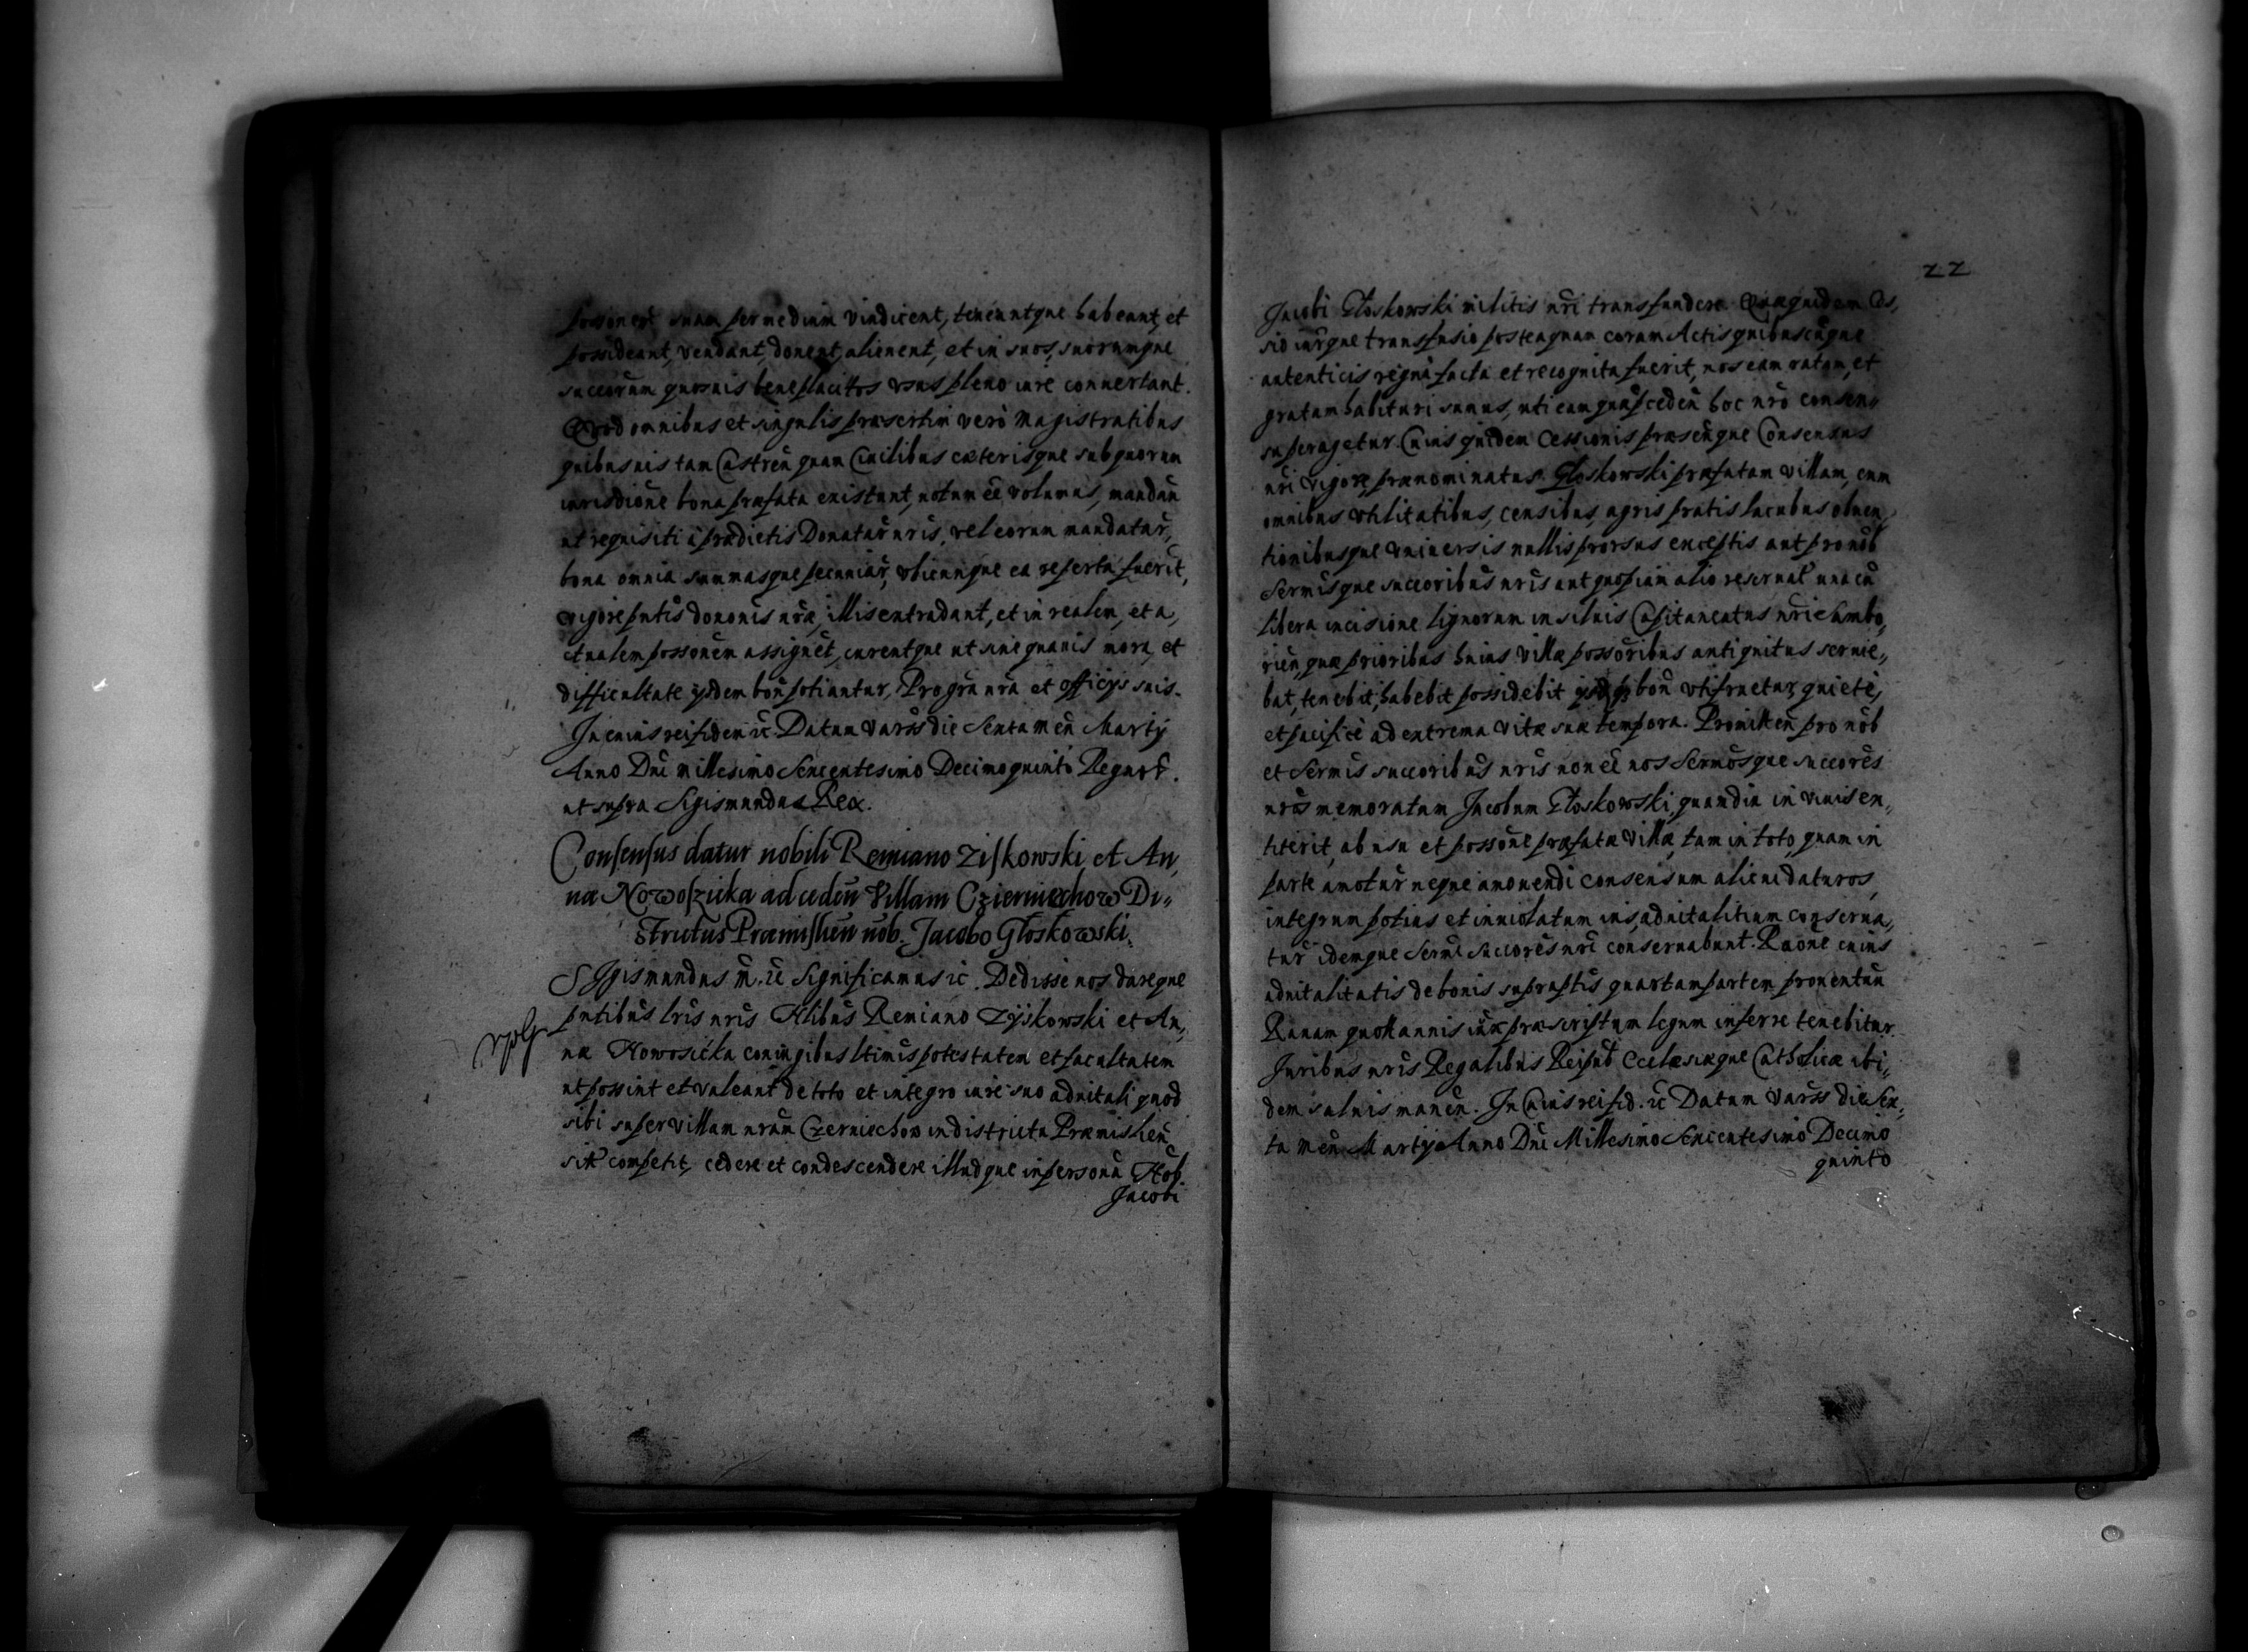 possideant, vendant, donent, alienent, et in suos, suorumque
succorum quosuis beneplacitos vsus pleno iure conuertant.
Quod omnibus et singulis præsertim verò Magistratibus
quibusuis tam Castreñ quam Ciuilibus cæterisque sub quorum
iurisdione bona præfata existunt, notum eē volumus, mandañ
ut requisiti à prædictis Donatar̃ nris, vel eorum mandatar̃,
bona omnia summasque pecuniar̃, vbicunque ea reperta fuerit,
vigore pntis dononis nræ, illis extradant, et in realem, et a,
ctualem possonem assignet, curentque ut sine quauis mora, et
difficultate ijsdem boñ potiantur, Pro gra nra et officijs suis.
In cuius rei fidem ic Datum Varss die Sexta meñ Martij
Anno Dni Millesimo Sexcentesimo Decimoquinto Regnor̃.
ut supra Sigismundus Rex.
Consensus datur nobili Remiano Ziskowski et An,
næ Nowoszicka ad cedeñ Villam Czierniechow Di,,
strictus Præmislieñ nob. Jacobo Głoskowski.
SIgismundus m. ic Significamus ic. Dedisse nos dareque
pntibus lris nris Nlibus Remiano Zijskowski et An,,
næ Nowosicka coniugibus ltimis potestatem et facultatem
ut possint et valeant de toto et integro iure suo aduitali quod
sibi super villam nram Czerniechow in districtu Præmislieñ
sit competit, cedere et condescendere illudque in persona Nob.
Jacobi
22
Jacobi Głoskowski militis nri transfundere. Quæquidem Ces,
sio iurisque transfusio posteaquam coram Actis quibuscunque
autenticis regni facta et recognita fuerit, nos eam ratam, et
gratam habituri sumus, uti eam quasi cedeñ hoc nro consen,,
su peragetur. Cuius quidem Cessionis præseñque Consensus
nri vigore, prænominatus Głoskowski præfatam villam, cum
omnibus vtilitatibus, censibus, agris pratis lacubus obuen,
tionibusque vniuersis nullis prorsus exceptis aut pro nob
Sermisque succoribus nris aut quopiam alio reseruat̃ una cũ
libera incisione lignorum in siluis Capitaneatus nri Sambo,
rieñ, quæ prioribus huius villæ possoribus antiquitus seruie,,
bat, tenebit, habebit possidebit boñ vtifruetur quietè,
et pacificè ad extrema vitæ suæ tempora. Promitteñ pro nob
et Sermis succoribus nris non eē nos Sermosque succores
nros memoratum Jacobum Głoskowski, quamdiu in viuis ex,,
titerit, ab usu et possone præfatæ villæ, tam in toto, quam in
parte amotur̃ neque amouendi consensum alicui daturos,
integrum potius et inuiolatum ius, aduitalitium conserua,,
tur̃ idemque Sermi succores nri conseruabunt. Raone cuius
aduitalitatis de bonis suprasptis quartam partem prouentuũ
Rauam quottannis iuxta præscriptum legum inferre tenebitur.
Juribus nris Regalibus Reipub Ecclesiæque Catholicæ ibi,,
dem saluis maneñ. In Cuius rei fid. ic Datum Varss die Sex,
ta Meñ Martij Anno Dni Millesimo Sexcentesimo Decimo
quinto